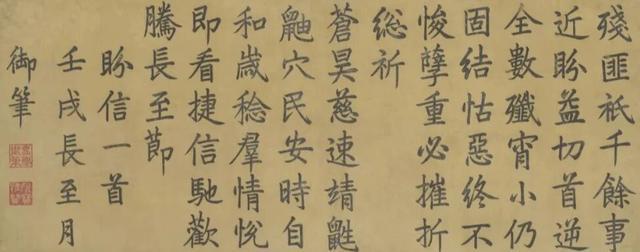 殘匪祇千餘事
近盼益切首逆
全數殲宵小仍
固結怙惡終不
悛孽重必摧折
總祈
蒼昊慈速靖鼪
鼬穴民安時自
和歲稔羣情悅
即看捷信馳歡
騰長至節
盼信一首
壬戌長至月
御筆